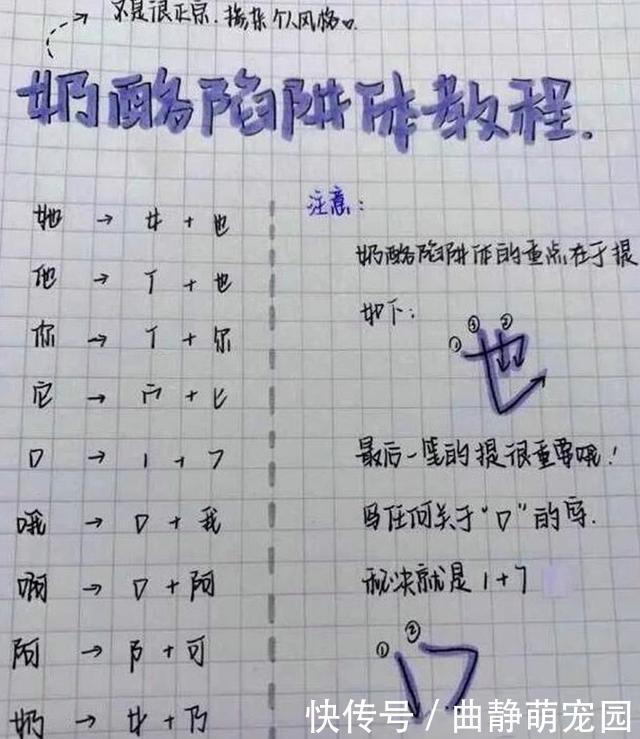 不是很正宗.掺杂个人风格.
奶酪陷阱体教程.
她 → 女 + 也
他 → 亻 + 也
你 → 亻 + 尔
它 → 宀 + 匕
口 → 1 + 7
哦 → 口 + 我
啊 → 口 + 阿
阿 → 阝 + 可
奶 → 女 + 乃
注意:
奶酪陷阱体的重点在于提
如下:
① ③ ②
也
最后一笔的提很重要哦!
写任何关于“口”的字.
秘诀就是 1 + 7
① ②
口
快传号 / 曲静萌宠园